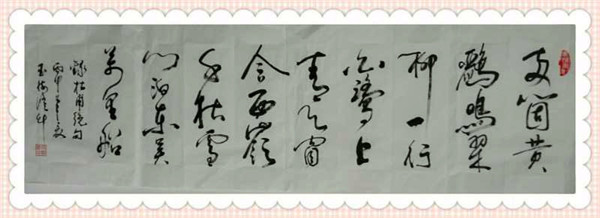 两箇黄
鸝鳴翠
柳一行
白鹭上
青天窗
含西嶺
千秋雪
门泊东吴
萬里船
録杜甫绝句
丙申